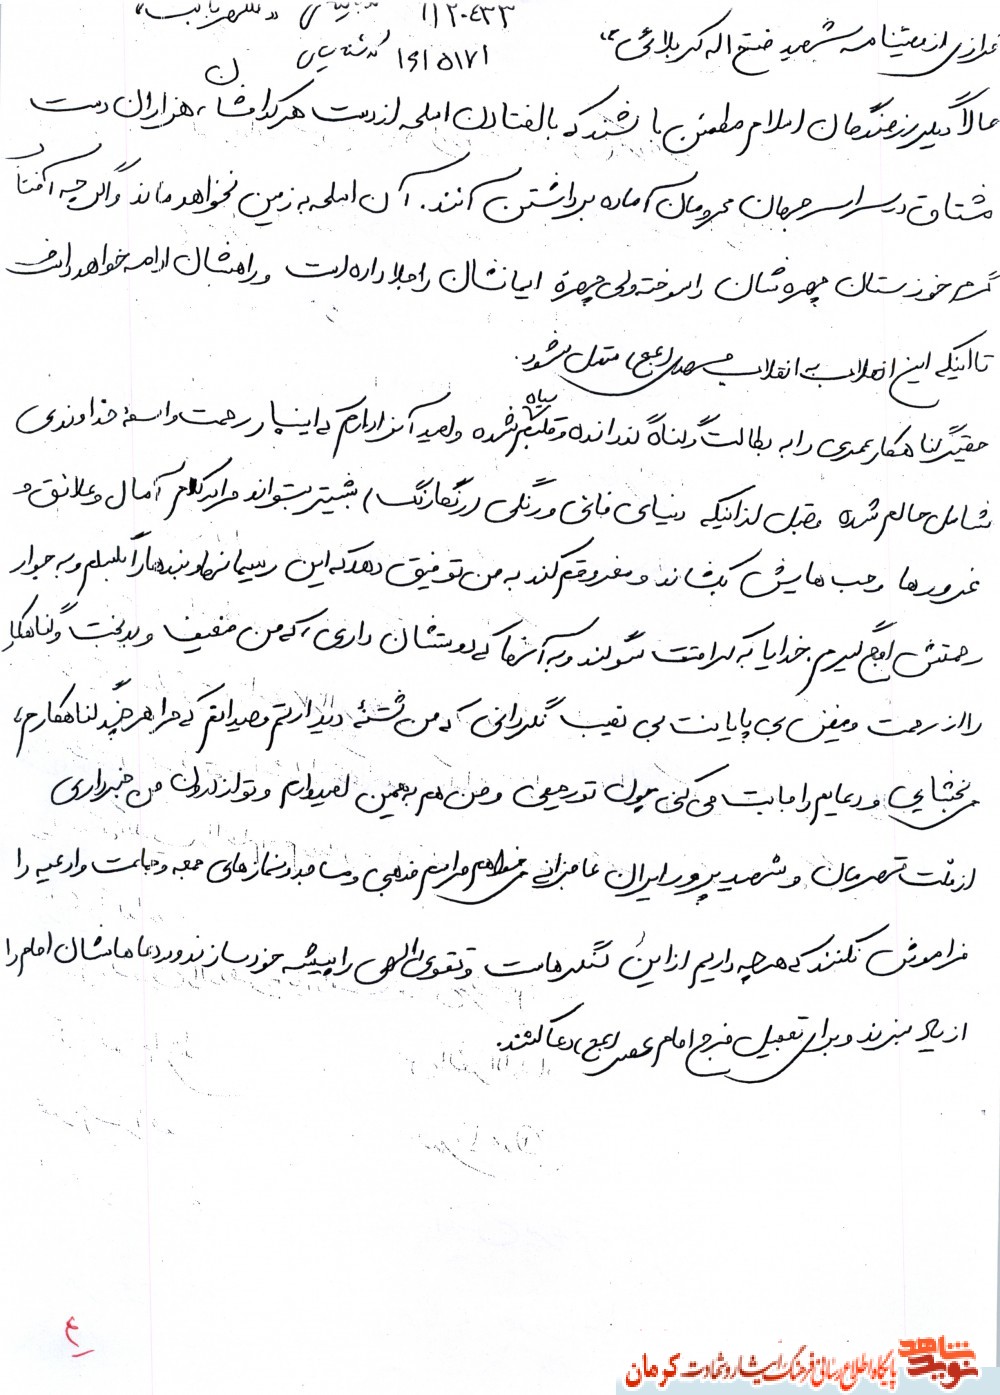 فرازی از وصیتنامه شهید فتح اله کربلائی
۱۱۲۰۴۳۳
۱۶۱۵۱۷۱ کد شناسایی
حالا دیگر رزمندگان اسلام مطمئن باشند که با افتادن اسلحه از دست هر کدامشان، هزاران دست
مشتاق در سراسر جهان محرومان آماده برداشتن آنند. آن اسلحه به زمین نخواهد ماند و اگر چه آفتاب
گرم خوزستان چهره شان را سوخته ولی چهرهٔ ایمانشان را جلا داده است و راهشان ادامه خواهد داشت
تا اینکه این انقلاب به انقلاب مهدی (عج) متصل شود.
حقیر گناهکار عمری را به بطالت و گناه گذرانده و قلبم سیاه شده و امید آنرا دارم که اینبار رحمت واسعهٔ خداوندی
شامل حالم شده و قبل از اینکه دنیای فانی و رنگی (رنگارنگ) بیشتر بتواند مرا به کام آمال و علائق و
غرورها و حب هایش بکشاند و مغروقم کند به من توفیق دهد که این ریسمانها و بندها را بگسلم و به جوار
رحمتش اوج گیرم. خدایا به کرامتت سوگند و به آنها که دوستشان داری، که من ضعیف و بدبخت و گناهکار
را از رحمت و فیض بی پایانت بی نصیب نگردانی که من تشنهٔ دیدارتم و میدانم که مرا هر چند گناهکارم،
می بخشایی و دعایم را اجابت می کنی چون تو رحیمی و من هم به همین امیدوارم و تو از درون من خبر داری
از ملت قهرمان و شهید پرور ایران عاجزانه می خواهم مراسم مذهبی و مساجد و نمازهای جمعه و جماعت و ادعیه را
فراموش نکنند که هر چه داریم از این سنگرهاست و تقوی الهی را پیشه خود سازند و در دعاهایشان امام را
از یاد نبرند و برای تعجیل فرج امام عصر (عج) دعا کنند.
۴
نوید شاهد
پایگاه اطلاع رسانی فرهنگ ایثار و شهادت کرمان